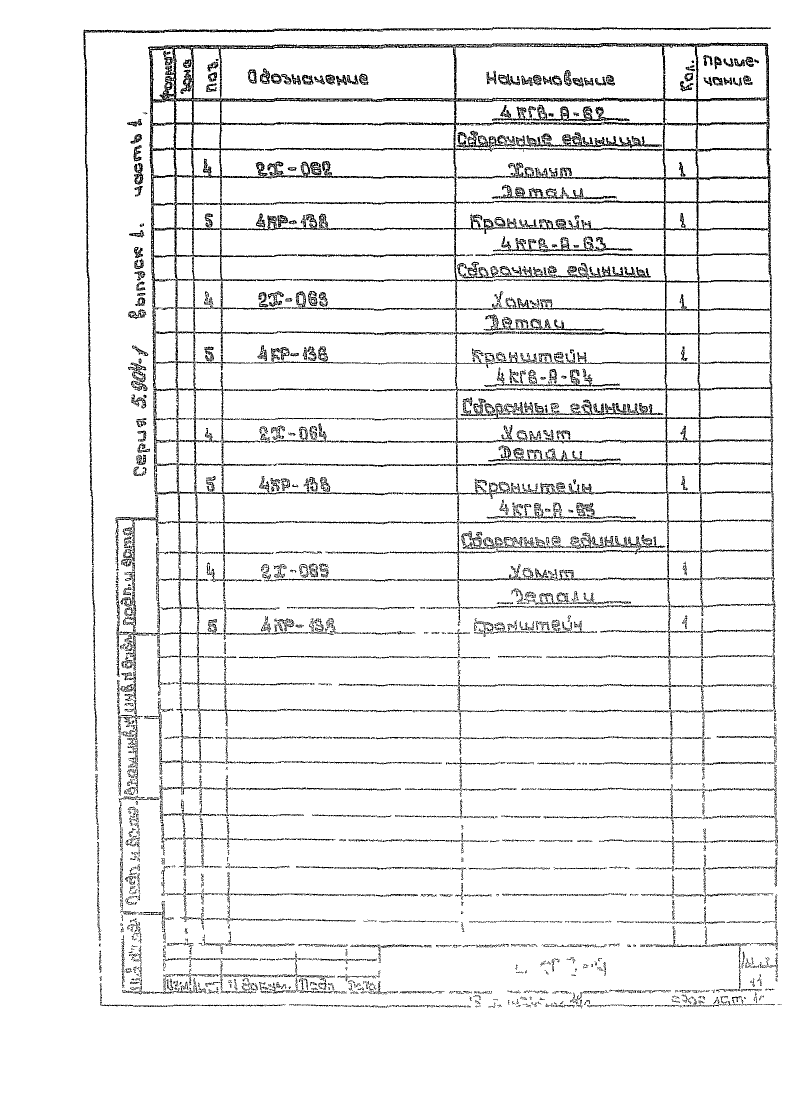 Серия 5.904-1 выпуск 1. часть 1.
Формат Зона Поз. Обозначение Наименование Кол. Приме-
чание
4КГВ-А-62
Сборочные единицы
4 2Х-062 Хомут 1
Детали
5 4КР-138 Кронштейн 1
4КГВ-А-63
Сборочные единицы
4 2Х-063 Хомут 1
Детали
5 4КР-138 Кронштейн 1
4КГВ-А-64
Сборочные единицы
4 2Х-064 Хомут 1
Детали
5 4КР-138 Кронштейн 1
4КГВ-А-65
Сборочные единицы
4 2Х-065 Хомут 1
Детали
5 4КР-138 Кронштейн 1
Подп и дата
Подп и дата
Изм Лист N докум. Подп Дата
11